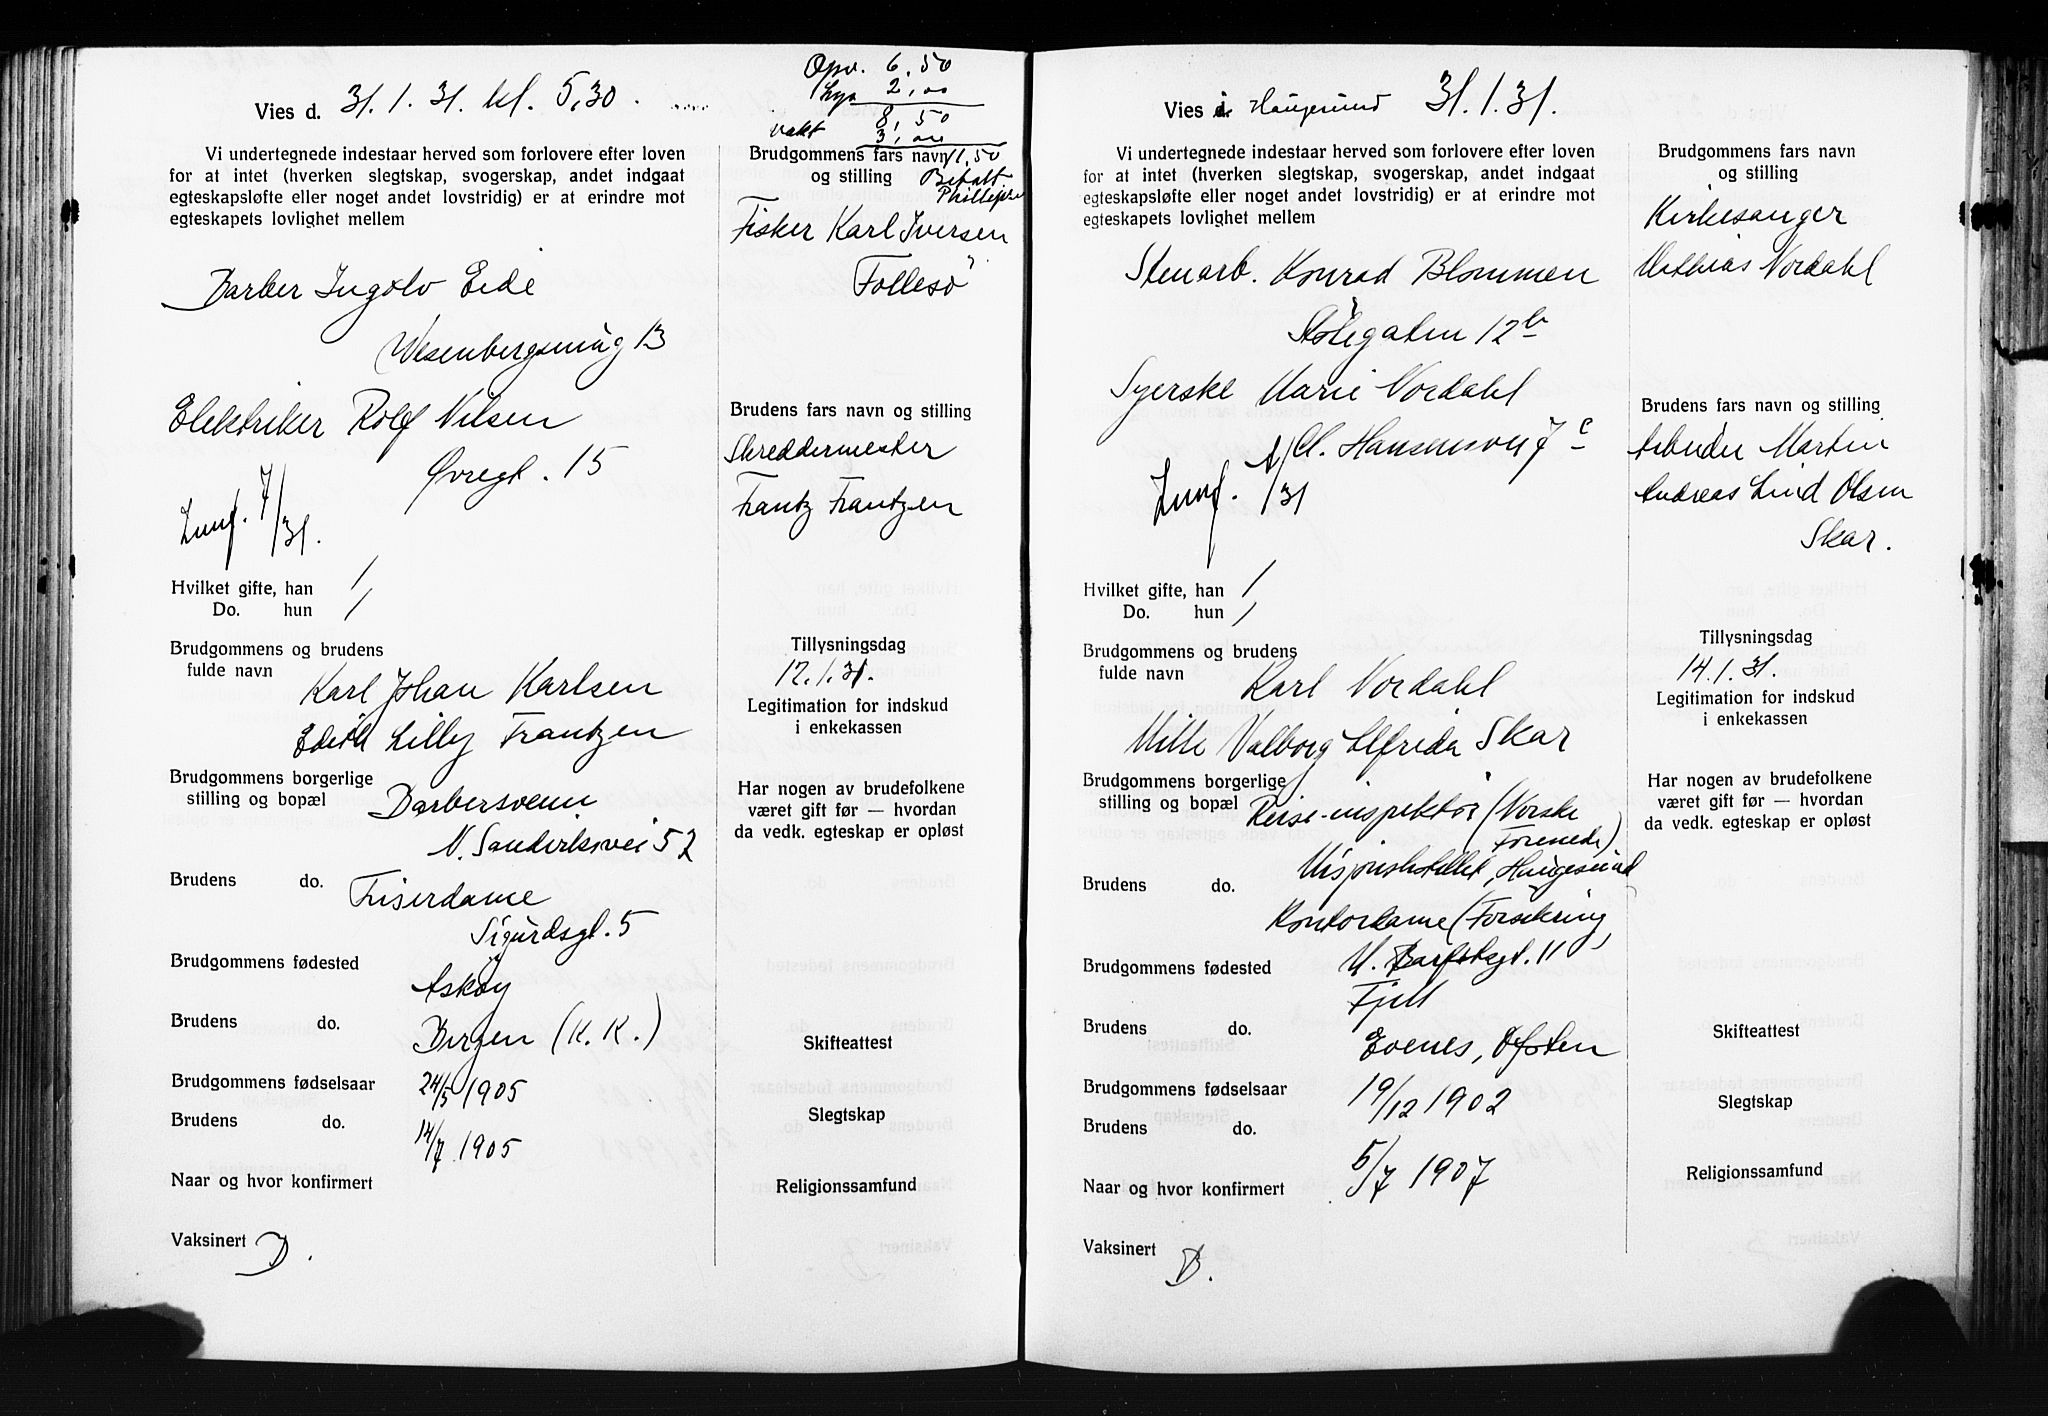 Vies d. 31.1.31. kl. 5,30.
Opv. 6,50
Lys 2,00
8,50
vakt 3,00
11,50
Betalt
Vi undertegnede indestaar herved som forlovere efter loven
for at intet (hverken slegtskap, svogerskap, andet indgaat
egteskapsløfte eller noget andet lovstridig) er at erindre mot
egteskapets lovlighet mellem
Barber Ingolv Eide
Wesenbergsmug 13
Elektriker Rolf Nilsen
Øvregt. 15
7/31.
Hvilket gifte, han 1
Do. hun 1
Brudgommens og brudens
fulde navn
Karl Johan Karlsen
Edith Lilly Frantzen
Brudgommens borgerlige
stilling og bopæl Barbersvenn
N. Sandviksvei 52
Brudens do. Friserdame
Sigurdsgt. 5
Brudgommens fødested
Askøy
Brudens do. Bergen (K. K.)
Brudgommens fødselsaar 24/5 1905
Brudens do. 14/7 1905
Naar og hvor konfirmert
Vaksinert D.
Brudgommens fars navn
og stilling
Fisker Karl Iversen
Follesø
Brudens fars navn og stilling
Skreddermester
Frantz Frantzen
Tillysningsdag
12.1.31.
Legitimation for indskud
i enkekassen
Har nogen av brudefolkene
været gift før — hvordan
da vedk. egteskap er opløst
Skifteattest
Slegtskap
Religionssamfund
Vies i Haugesund 31.1.31.
Vi undertegnede indestaar herved som forlovere efter loven
for at intet (hverken slegtskap, svogerskap, andet indgaat
egteskapsløfte eller noget andet lovstridig) er at erindre mot
egteskapets lovlighet mellem
Stenarb. Konrad Blommen
Stølegaten 12b
Syerske Marie Nordahl
Cl. Hansensvei 7c
/31
Hvilket gifte, han 1
Do. hun 1
Brudgommens og brudens
fulde navn Karl Nordahl
Mille Valborg Elfrida Skar
Brudgommens borgerlige
stilling og bopæl Reise-inspektør (Norske
Forenede)
Misjonshotellet, Haugesund
Brudens do.
Kontordame (Forsikring)
Brudgommens fødested
Fjell
Brudens do. Evenes, Ofoten
Brudgommens fødselsaar 19/12 1902
Brudens do.
5/7 1907
Naar og hvor konfirmert
Vaksinert B.
Brudgommens fars navn
og stilling
Kirkesanger
Mathias Nordahl
Brudens fars navn og stilling
Arbeider Martin
Andreas Lind Olsen
Skar.
Tillysningsdag
14.1.31.
Legitimation for indskud
i enkekassen
Har nogen av brudefolkene
været gift før — hvordan
da vedk. egteskap er opløst
Skifteattest
Slegtskap
Religionssamfund